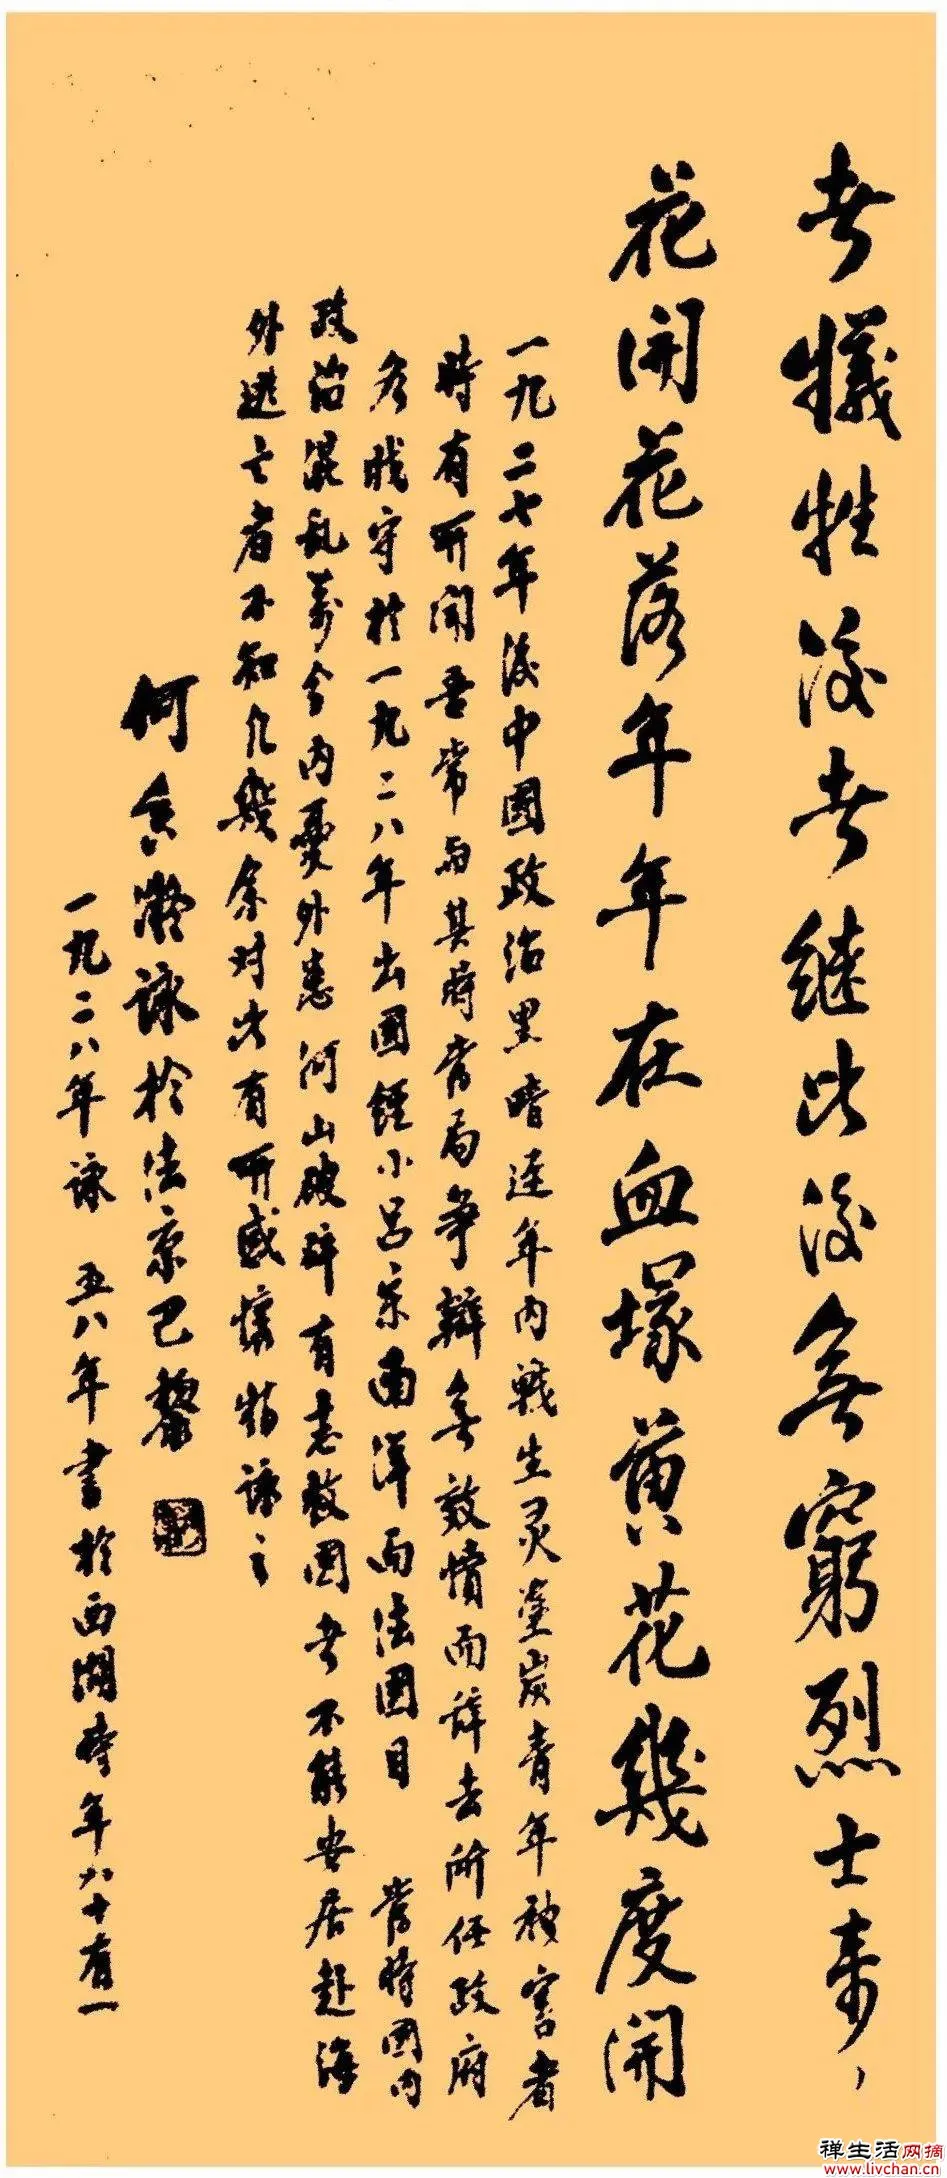 者犧牲後者継此後無窮烈士来、
花開花落年年在血塚黄花幾度開
一九二七年後中國政治黑暗連年内戰生灵塗炭青年被害者
時有所聞吾常与其時當局争辯無效憤而辞去所任政府
各職守於一九二八年出國經小吕宋南洋而法國目 當時國内
政治混乱萬分内憂外患河山破碎有志救國者不能安居赴海
外逃亡者不知凡幾余对此有所感懷特詠之
何香凝詠於法京巴黎
一九二八年詠 五八年書於西湖時年八十有一
禅生活网摘
www.livchan.cn